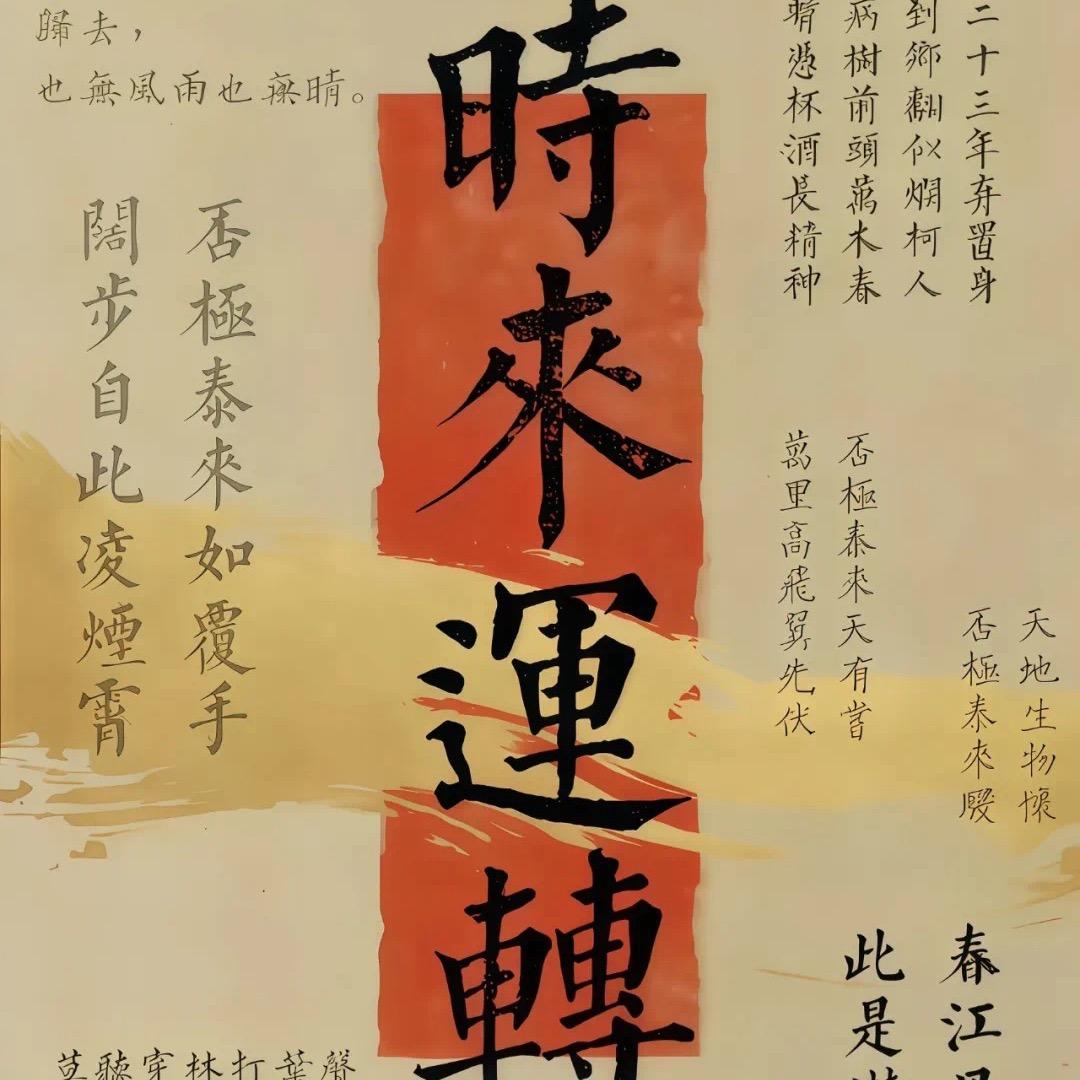 歸去，
也無風雨也無晴。
時來運轉
二十三年弃置身
到鄉翻似爛柯人
病樹前頭萬木春
憑杯酒長精神
否極泰來如覆手
闊步自此凌煙霄
否極泰來天有嘗
萬里高飛翼先伏
天地生物懷
否極泰來腰
春江
此是
莫聽穿林打葉聲